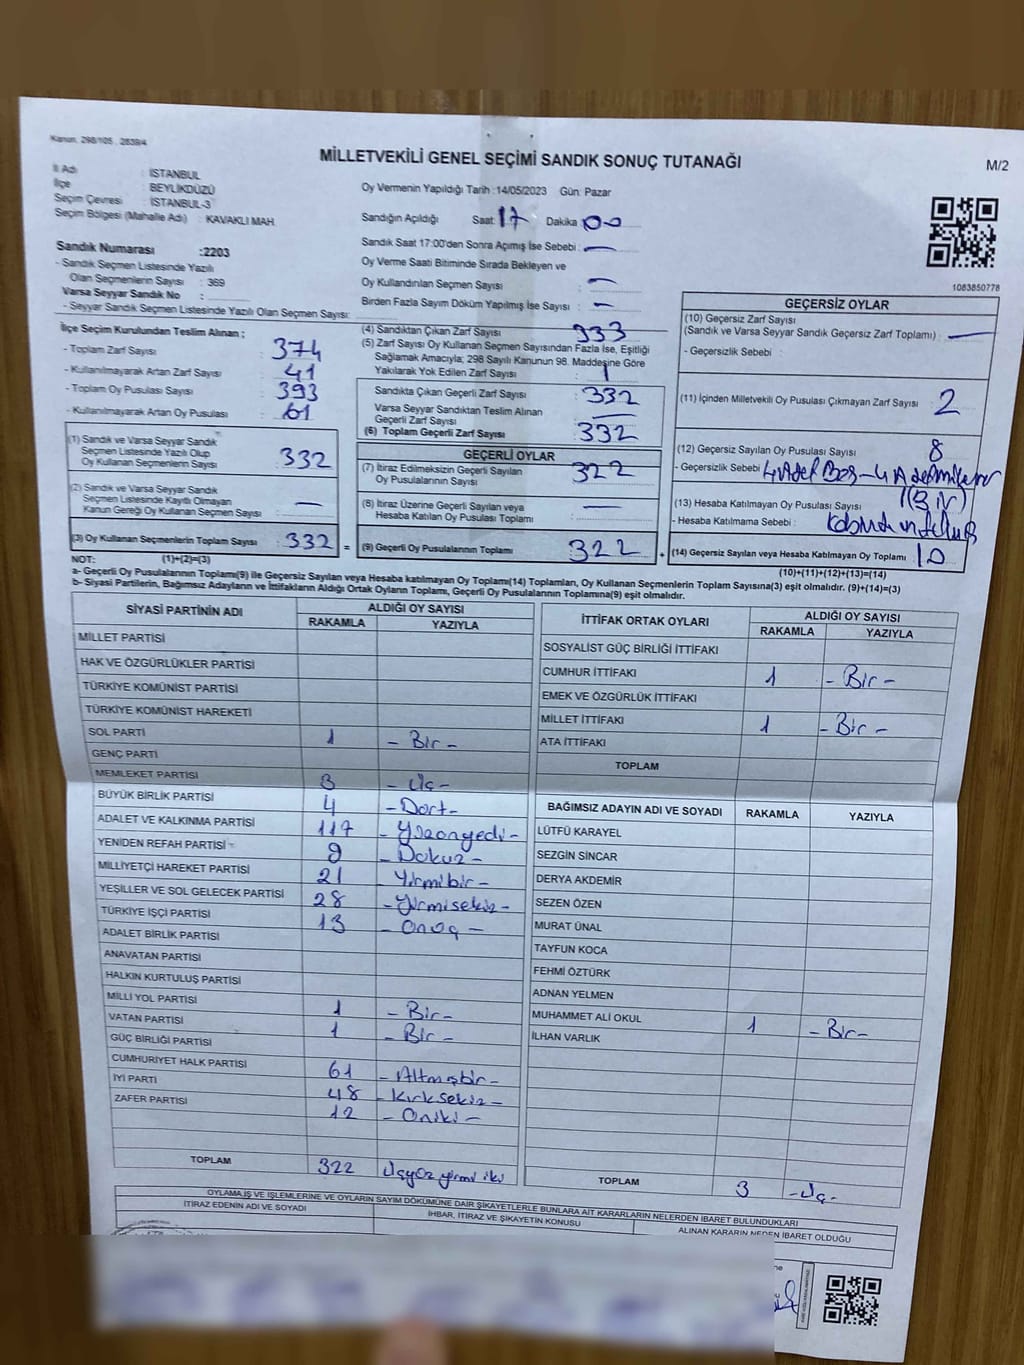 Kanun, 298/105 , 2839/4
MİLLETVEKİLİ GENEL SEÇİMİ SANDIK SONUÇ TUTANAĞI
M/2
İl Adı : İSTANBUL
İlçe : BEYLİKDÜZÜ
Seçim Çevresi : İSTANBUL-3
Seçim Bölgesi (Mahalle Adı) : KAVAKLI MAH.
Oy Vermenin Yapıldığı Tarih :14/05/2023 Gün: Pazar
Sandığın Açıldığı Saat: 17 Dakika 00
Sandık Saat 17:00'den Sonra Açımış İse Sebebi : —
Oy Verme Saati Bitiminde Sırada Bekleyen ve
Oy Kullandırılan Seçmen Sayısı : —
Birden Fazla Sayım Döküm Yapılmış İse Sayısı : —
Sandık Numarası :2203
- Sandık Seçmen Listesinde Yazılı
Olan Seçmenlerin Sayısı : 369
Varsa Seyyar Sandık No :
- Seyyar Sandık Seçmen Listesinde Yazılı Olan Seçmen Sayısı:
1083850778
İlçe Seçim Kurulundan Teslim Alınan ;
- Toplam Zarf Sayısı : 374
- Kullanılmayarak Artan Zarf Sayısı : 41
- Toplam Oy Pusulası Sayısı : 393
- Kullanılmayarak Artan Oy Pusulası : 61
(1) Sandık ve Varsa Seyyar Sandık
Seçmen Listesinde Yazılı Olup
Oy Kullanan Seçmenlerin Sayısı : 332
(2) Sandık ve Varsa Seyyar Sandık
Seçmen Listesinde Kayıtlı Olmayan
Kanun Gereği Oy Kullanan Seçmen Sayısı : —
(3) Oy Kullanan Seçmenlerin Toplam Sayısı : 332 =
(4) Sandıktan Çıkan Zarf Sayısı 333
(5) Zarf Sayısı Oy Kullanan Seçmen Sayısından Fazla İse, Eşitliği
Sağlamak Amacıyla; 298 Sayılı Kanunun 98. Maddesine Göre
Yakılarak Yok Edilen Zarf Sayısı : 1
Sandıkta Çıkan Geçerli Zarf Sayısı : 332
Varsa Seyyar Sandıktan Teslim Alınan
Geçerli Zarf Sayısı : —
(6) Toplam Geçerli Zarf Sayısı : 332
GEÇERLİ OYLAR
(7) İtiraz Edilmeksizin Geçerli Sayılan
Oy Pusulalarının Sayısı : 322
(8) İtiraz Üzerine Geçerli Sayılan veya
Hesaba Katılan Oy Pusulası Toplamı : —
(9) Geçerli Oy Pusulalarının Toplamı : 322 +
GEÇERSİZ OYLAR
(10) Geçersiz Zarf Sayısı
(Sandık ve Varsa Seyyar Sandık Geçersiz Zarf Toplamı) : —
- Geçersizlik Sebebi :
(11) İçinden Milletvekili Oy Pusulası Çıkmayan Zarf Sayısı : 2
(12) Geçersiz Sayılan Oy Pusulası Sayısı : 8
- Geçersizlik Sebebi : 4 Adet Boş - 4 A
(13) Hesaba Katılmayan Oy Pusulası Sayısı :
- Hesaba Katılmama Sebebi :
(14) Geçersiz Sayılan veya Hesaba Katılmayan Oy Toplamı : 10
NOT: (1)+(2)=(3)
(10)+(11)+(12)+(13)=(14)
a- Geçerli Oy Pusulalarının Toplamı(9) ile Geçersiz Sayılan veya Hesaba katılmayan Oy Toplamı(14) Toplamları, Oy Kullanan Seçmenlerin Toplam Sayısına(3) eşit olmalıdır. (9)+(14)=(3)
b- Siyasi Partilerin, Bağımsız Adayların ve İttifakların Aldığı Ortak Oyların Toplamı, Geçerli Oy Pusulalarının Toplamına(9) eşit olmalıdır.
SİYASİ PARTİNİN ADI ALDIĞI OY SAYISI
RAKAMLA YAZIYLA
MİLLET PARTİSİ
HAK VE ÖZGÜRLÜKLER PARTİSİ
TÜRKİYE KOMÜNİST PARTİSİ
TÜRKİYE KOMÜNİST HAREKETİ
SOL PARTİ 1 - Bir -
GENÇ PARTİ
MEMLEKET PARTİSİ 3 - Üç -
BÜYÜK BİRLİK PARTİSİ 4 - Dört -
ADALET VE KALKINMA PARTİSİ 117 - Yüzonyedi -
YENİDEN REFAH PARTİSİ 9 - Dokuz -
MİLLİYETÇİ HAREKET PARTİSİ 21 - Yirmibir -
YEŞİLLER VE SOL GELECEK PARTİSİ 28 - Yirmisekiz -
TÜRKİYE İŞÇİ PARTİSİ 13 - Onüç -
ADALET BİRLİK PARTİSİ
ANAVATAN PARTİSİ
HALKIN KURTULUŞ PARTİSİ
MİLLİ YOL PARTİSİ 1 - Bir -
VATAN PARTİSİ 1 - Bir -
GÜÇ BİRLİĞİ PARTİSİ
CUMHURİYET HALK PARTİSİ 61 - Altmışbir -
İYİ PARTİ 48 - Kırksekiz -
ZAFER PARTİSİ 12 - Oniki -
TOPLAM 322 Üçyüz yirmi iki
İTTİFAK ORTAK OYLARI ALDIĞI OY SAYISI
RAKAMLA YAZIYLA
SOSYALİST GÜÇ BİRLİĞİ İTTİFAKI
CUMHUR İTTİFAKI 1 - Bir -
EMEK VE ÖZGÜRLÜK İTTİFAKI
MİLLET İTTİFAKI 1 - Bir -
ATA İTTİFAKI
TOPLAM
BAĞIMSIZ ADAYIN ADI VE SOYADI RAKAMLA YAZIYLA
LÜTFÜ KARAYEL
SEZGİN SİNCAR
DERYA AKDEMİR
SEZEN ÖZEN
MURAT ÜNAL
TAYFUN KOCA
FEHMİ ÖZTÜRK
ADNAN YELMEN
MUHAMMET ALİ OKUL 1 - Bir -
İLHAN VARLIK
TOPLAM 3 - Üç -
OYLAMA İŞ VE İŞLEMLERİNE VE OYLARIN SAYIM DÖKÜMÜNE DAİR ŞİKAYETLERLE BUNLARA AİT KARARLARIN NELERDEN İBARET BULUNDUKLARI
İTİRAZ EDENİN ADI VE SOYADI İHBAR, İTİRAZ VE ŞİKAYETİN KONUSU ALINAN KARARIN NEDEN İBARET OLDUĞU